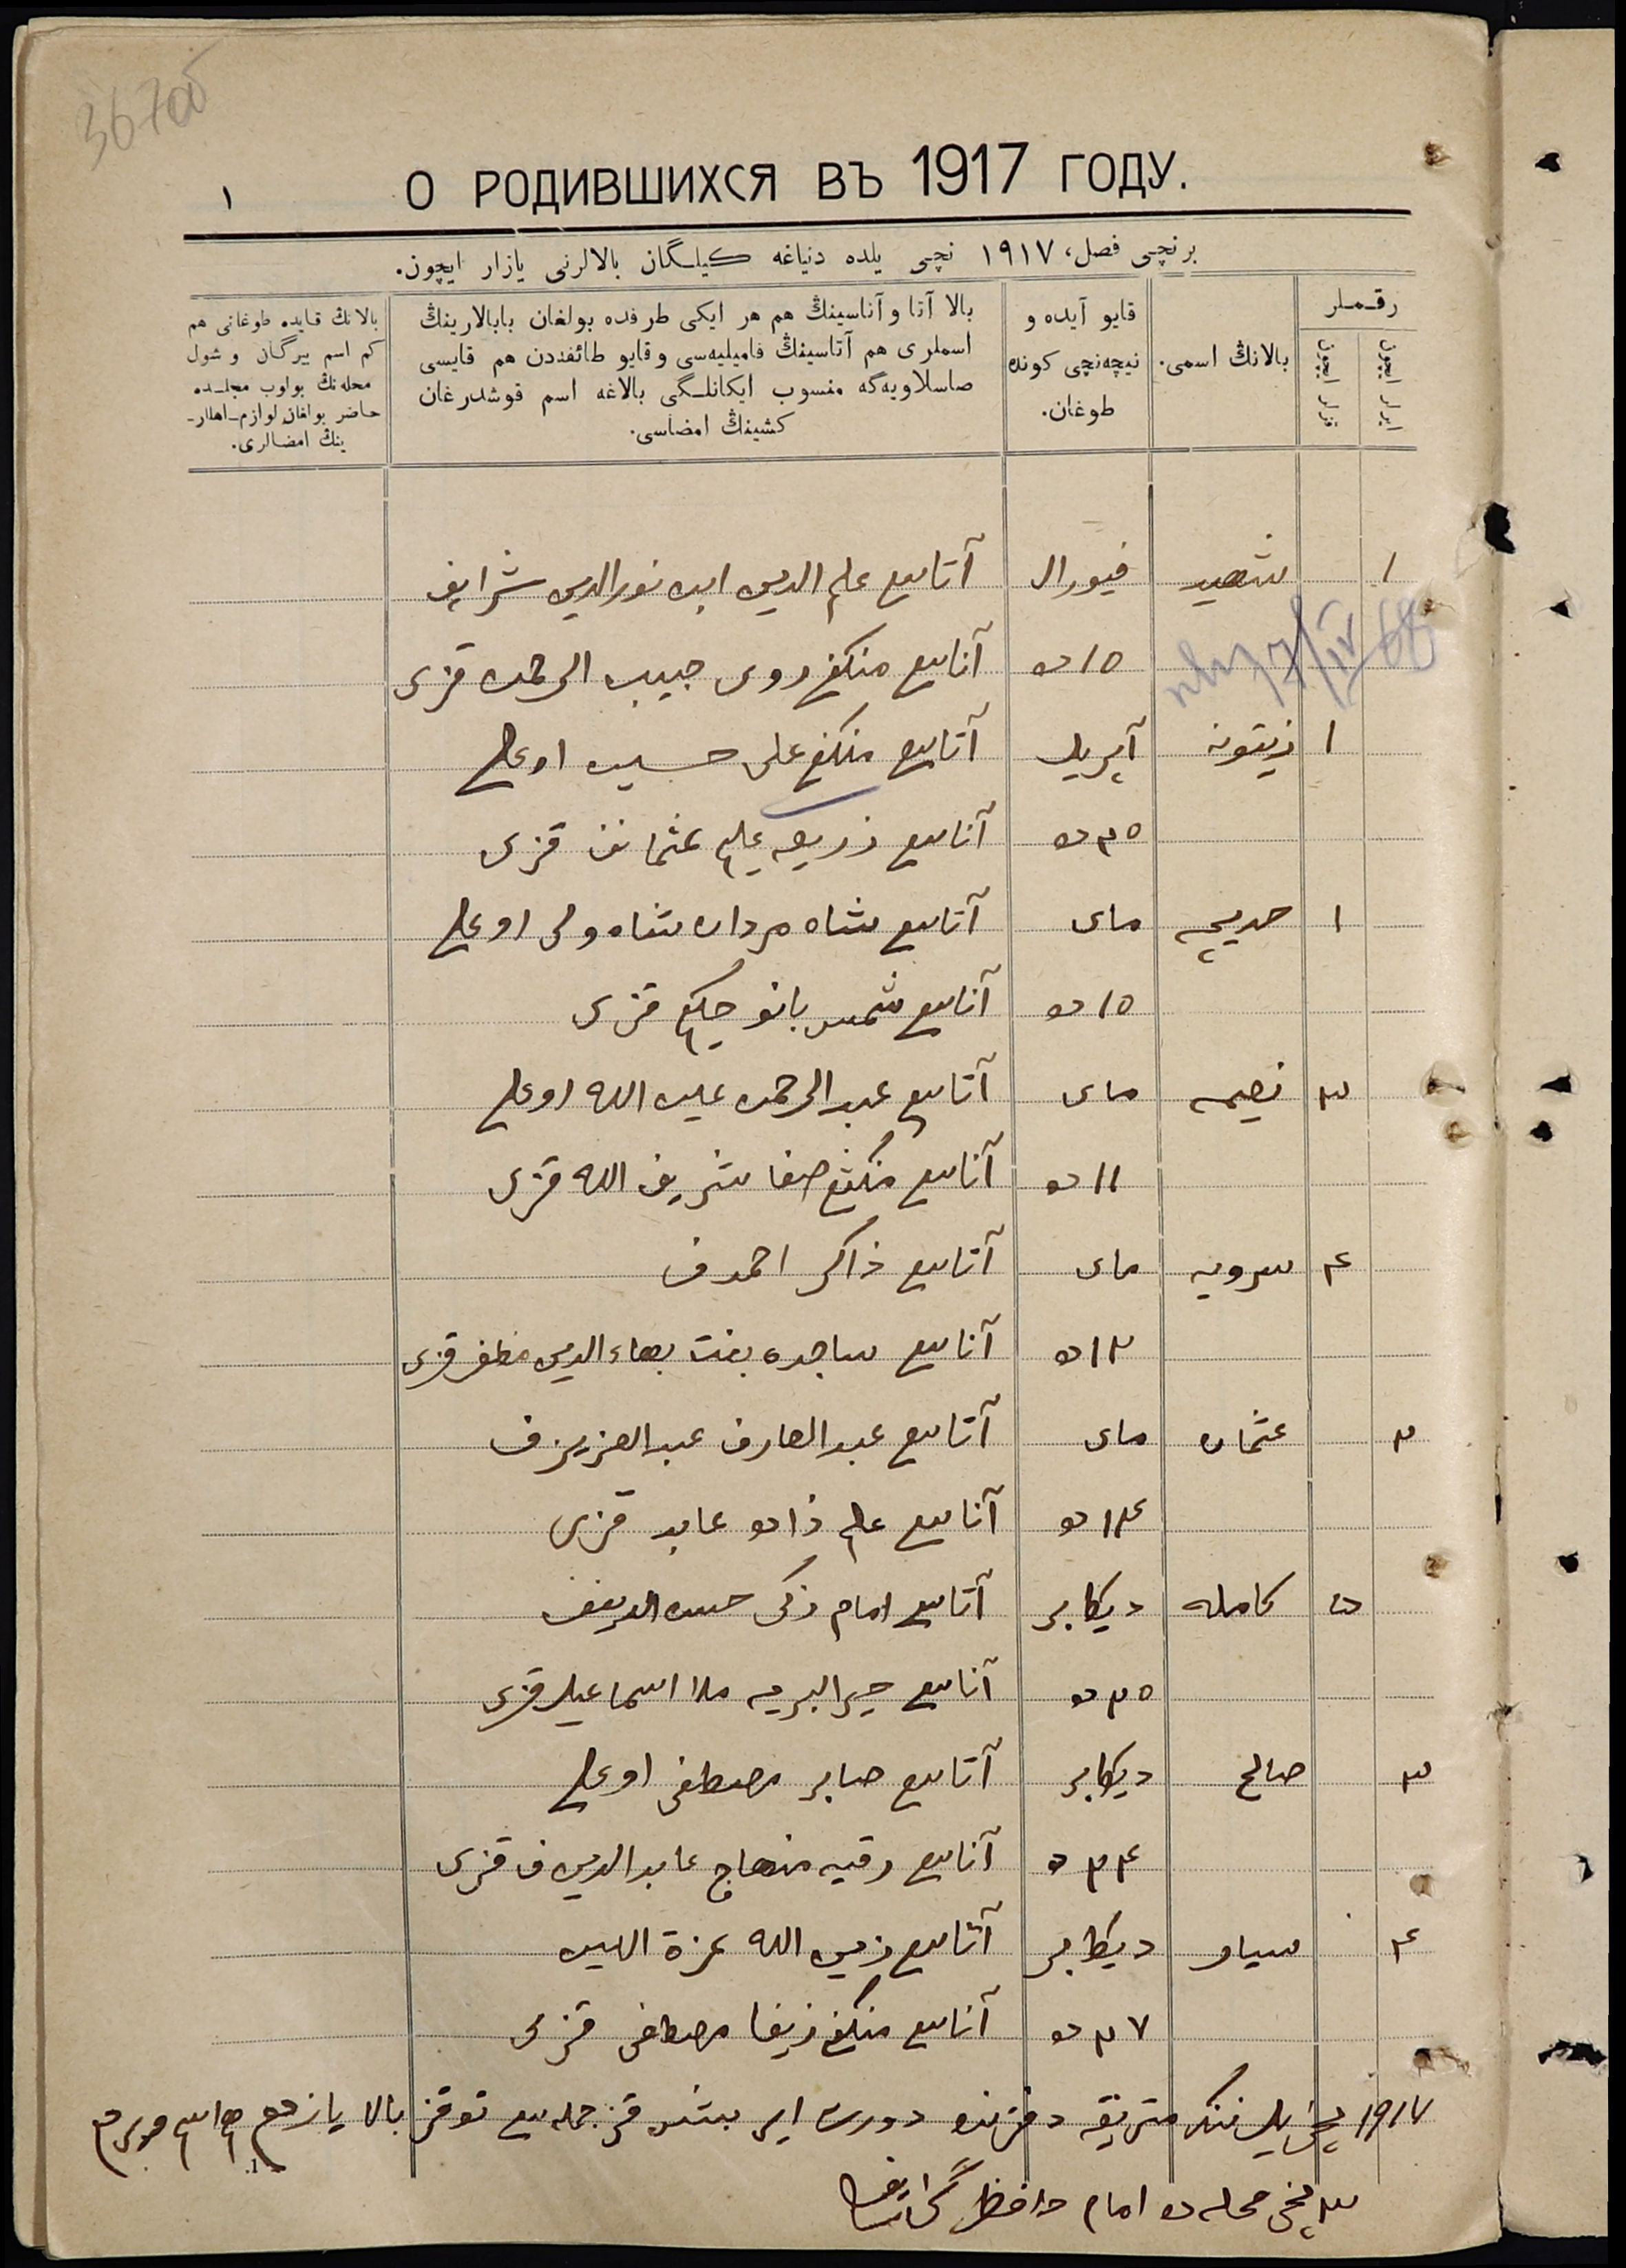 36700
О РОДИВШИХСЯ ВЪ 1917 ГОДУ.
١
برنچی فصل، ١٩١٧ نچی یلده دنیاغه کیلگان بالالرنی یازار ایچون.
رقملر
ایرلر ایچون
قزلر ایچون
بالانڭ اسمی.
قایو آیده و
نیچه‌نچی کونده
طوغان.
بالا آتا و آناسینڭ هم هر ایکی طرفده بولغان بابالارینڭ
اسملری هم آتاسینڭ فامیلیه‌سی و قایو طائفه‌دن هم قایسی
صاسلاویه‌گه منسوب ایکانلگی بالاغه اسم قوشدرغان
کشینڭ امضاسی.
بالانڭ قایده طوغانی هم
کم اسم بیرگان و شول
محله‌نڭ بولوب مجلسده
حاضر بولغان لوازم اهللر-
ینڭ امضالری.
١ شهید فیورال آتاسی علم الدین ابن نورالدین شرایف
١٥ ده آناسی منکغ روی حبیب الرحمن قزی
١ زیتونه آپریل آتاسی منکغ علی حسین اوغلی
٢٥ ده آناسی علیم عثمانف قزی
١ خدیجه مای آتاسی شاه مردان شاه ولی اوغلی
١٥ ده آناسی شمس بانو حکیم قزی
٣ نعیمه مای آتاسی عبدالرحمن الله اوغلی
١١ ده آناسی منکغ صفا شریف الله قزی
۴ سرویه مای آتاسی ذاکر احمدف
١٢ ده آناسی ساجده بنت بهاء الدین مظفر قزی
٢ عثمان مای آتاسی عبد العارف عبد العزیزف
١۴ ده آناسی علم زاده عابد قزی
٥ کامله دیکابر آتاسی امام زکی حسن الدینف
٢٥ ده آناسی خیر البریه ملا اسماعیل قزی
٣ صالح دیکابر آتاسی صابر مصطفی اوغلی
٢۴ ده آناسی رقیه منهاج عابد الدین ف قزی
۴ دیکابر آتاسی الله عزة
٢٧ ده آناسی منکغ زیفا مصطفی قزی
١٩١٧ نچی یل ننک متریقه دفترنده دورت ایر بیش قز جمله سی توقز بالا یازدم
٣ نچی محله ده امام حافظ